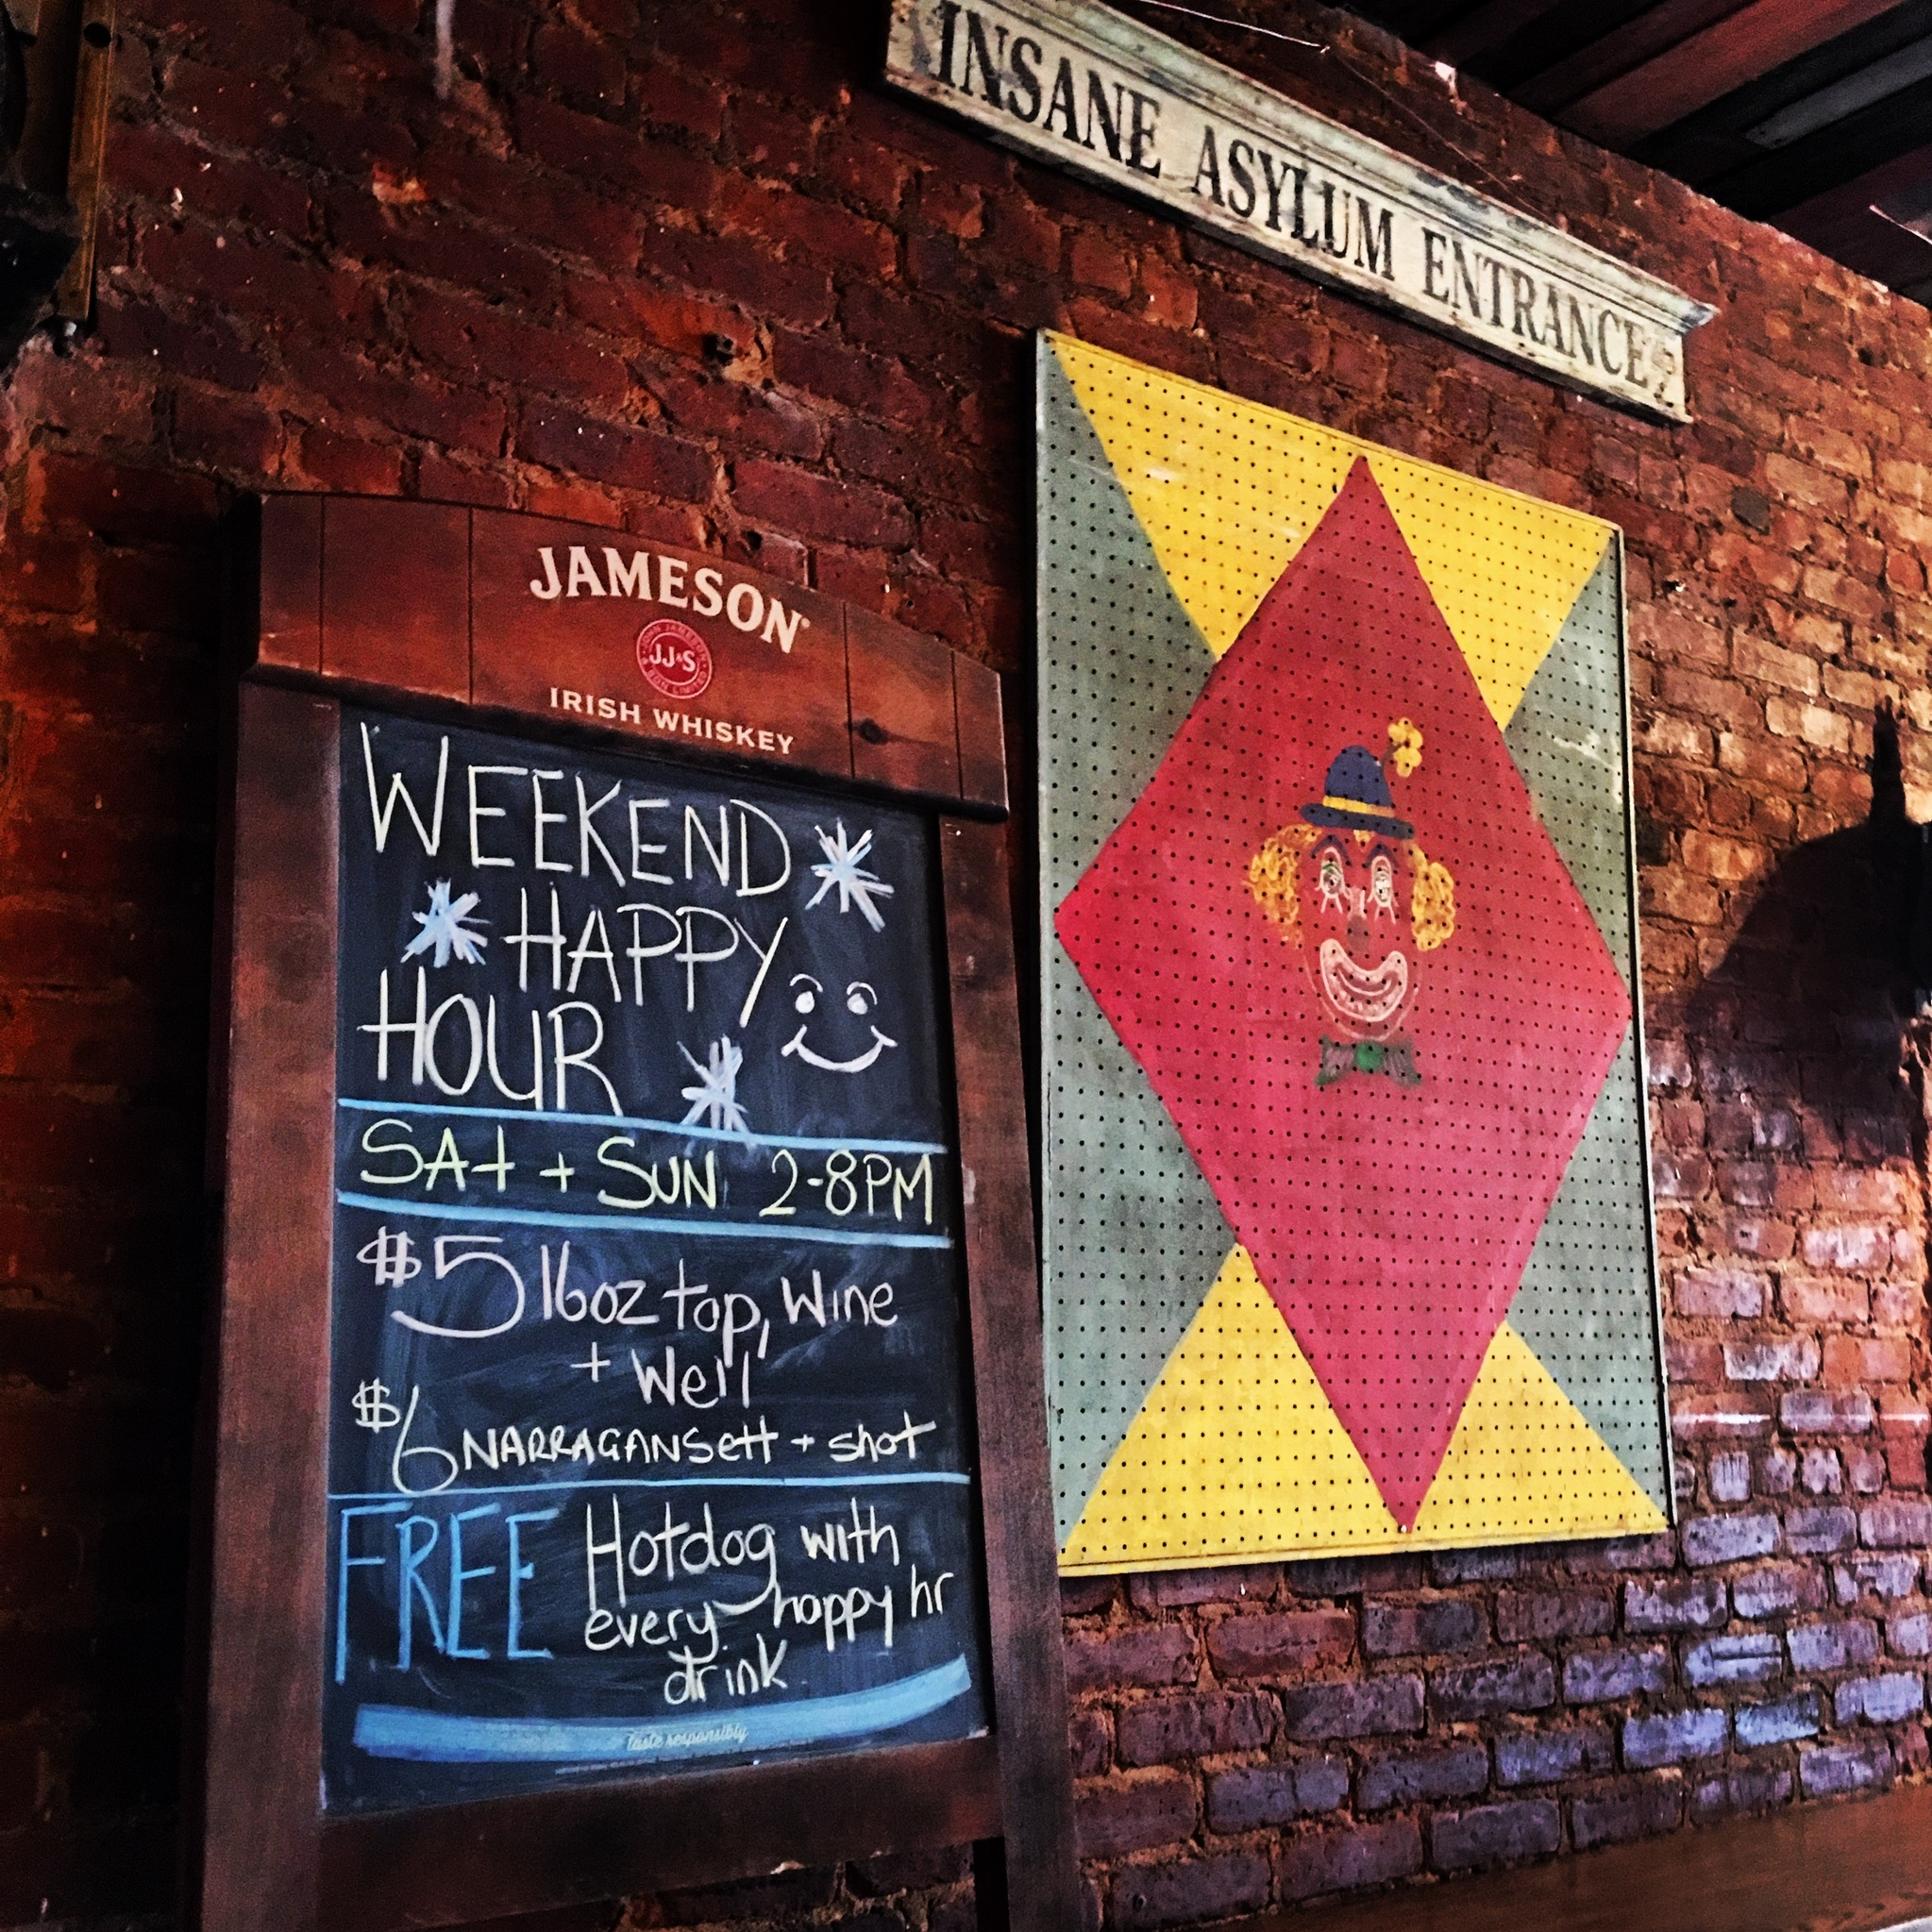 INSANE ASYLUM ENTRANCE
JAMESON
JOHN JAMESON
JJ&S
& SON LIMITED
IRISH WHISKEY
WEEKEND
HAPPY
HOUR
SAt + SUN 2-8PM
$5 16oz top, Wine
+ Well
$6 NARRAGANSett + shot
FREE Hotdog with
every happy hr
drink
Taste responsibly